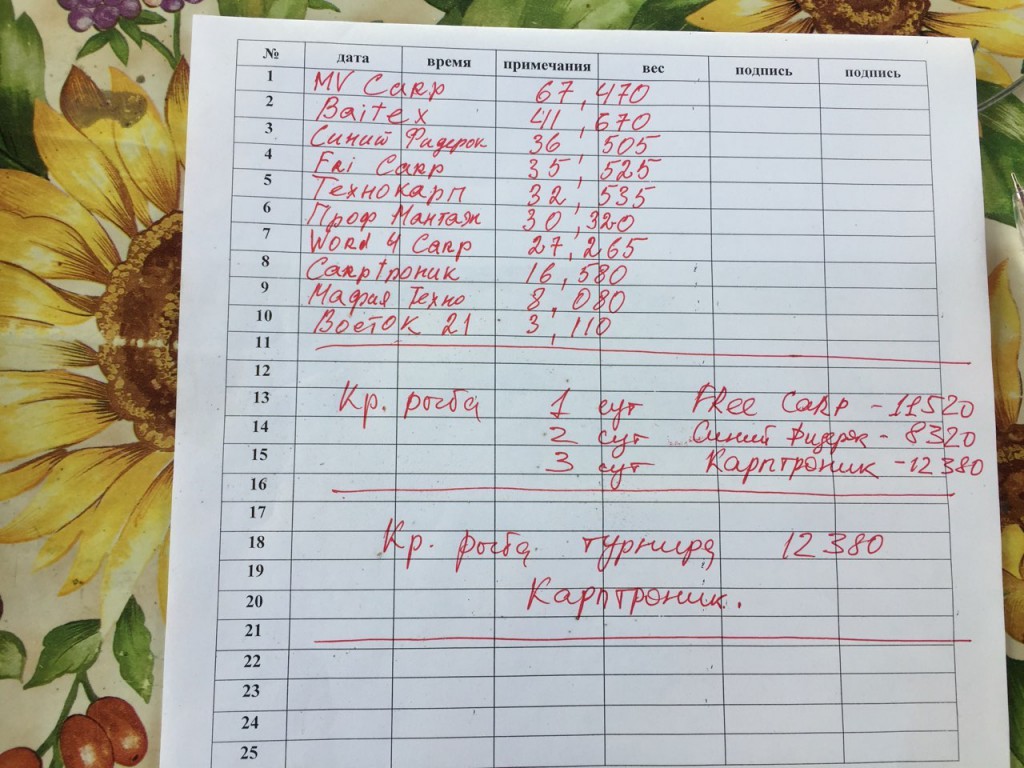 № дата время примечания вес подпись подпись
1 MV Carp 67,470
2 Baitex 41,670
3 Синий Фидерок 36,505
4 Fri Carp 35,525
5 Технокарп 32,535
6 Проф Мантаж 30,320
7 Word 4 Carp 27,265
8 Carpтроник 16,580
9 Мафия Техно 8,080
10 Восток 21 3,110
11
12
13 Кр. рыба 1 сут FRee CaRp - 11520
14 2 сут Синий Фидерок - 8320
15 3 сут Карптроник - 12380
16
17
18 Кр. рыба турнира 12380
19
20 Карптроник.
21
22
23
24
25